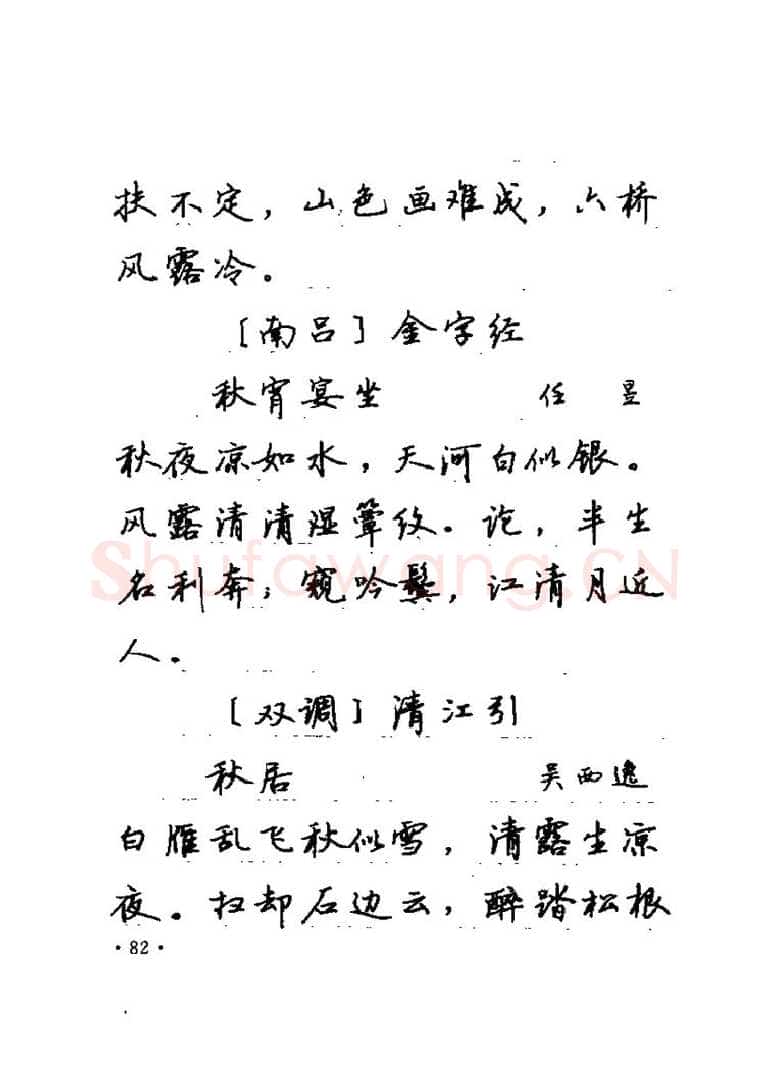 扶不定，山色画难成，六桥
风露冷。
［南吕］金字经
秋宵宴坐 任 昱
秋夜凉如水，天河白似银。
风露清清湿簟纹。论，半生
名利奔；窥吟鬓，江清月近
人。
［双调］清江引
秋居 吴西逸
白雁乱飞秋似雪，清露生凉
夜。扫却石边云，醉踏松根
·82·
Shufawang.CN